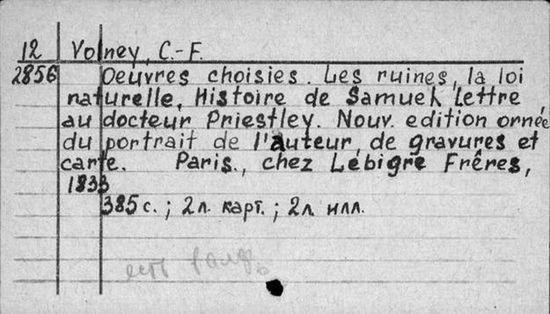 12 Volney, C.-F.
2856 Oeuvres choisies. Les ruines, la loi
naturelle, Histoire de Samuel, Lettre
au docteur Priestley. Nouv. edition ornée
du portrait de l'auteur, de gravures et
carte. Paris., chez Lebigre Frêres,
1833
385 с.; 2 л. карт.; 2 л. илл.
есть